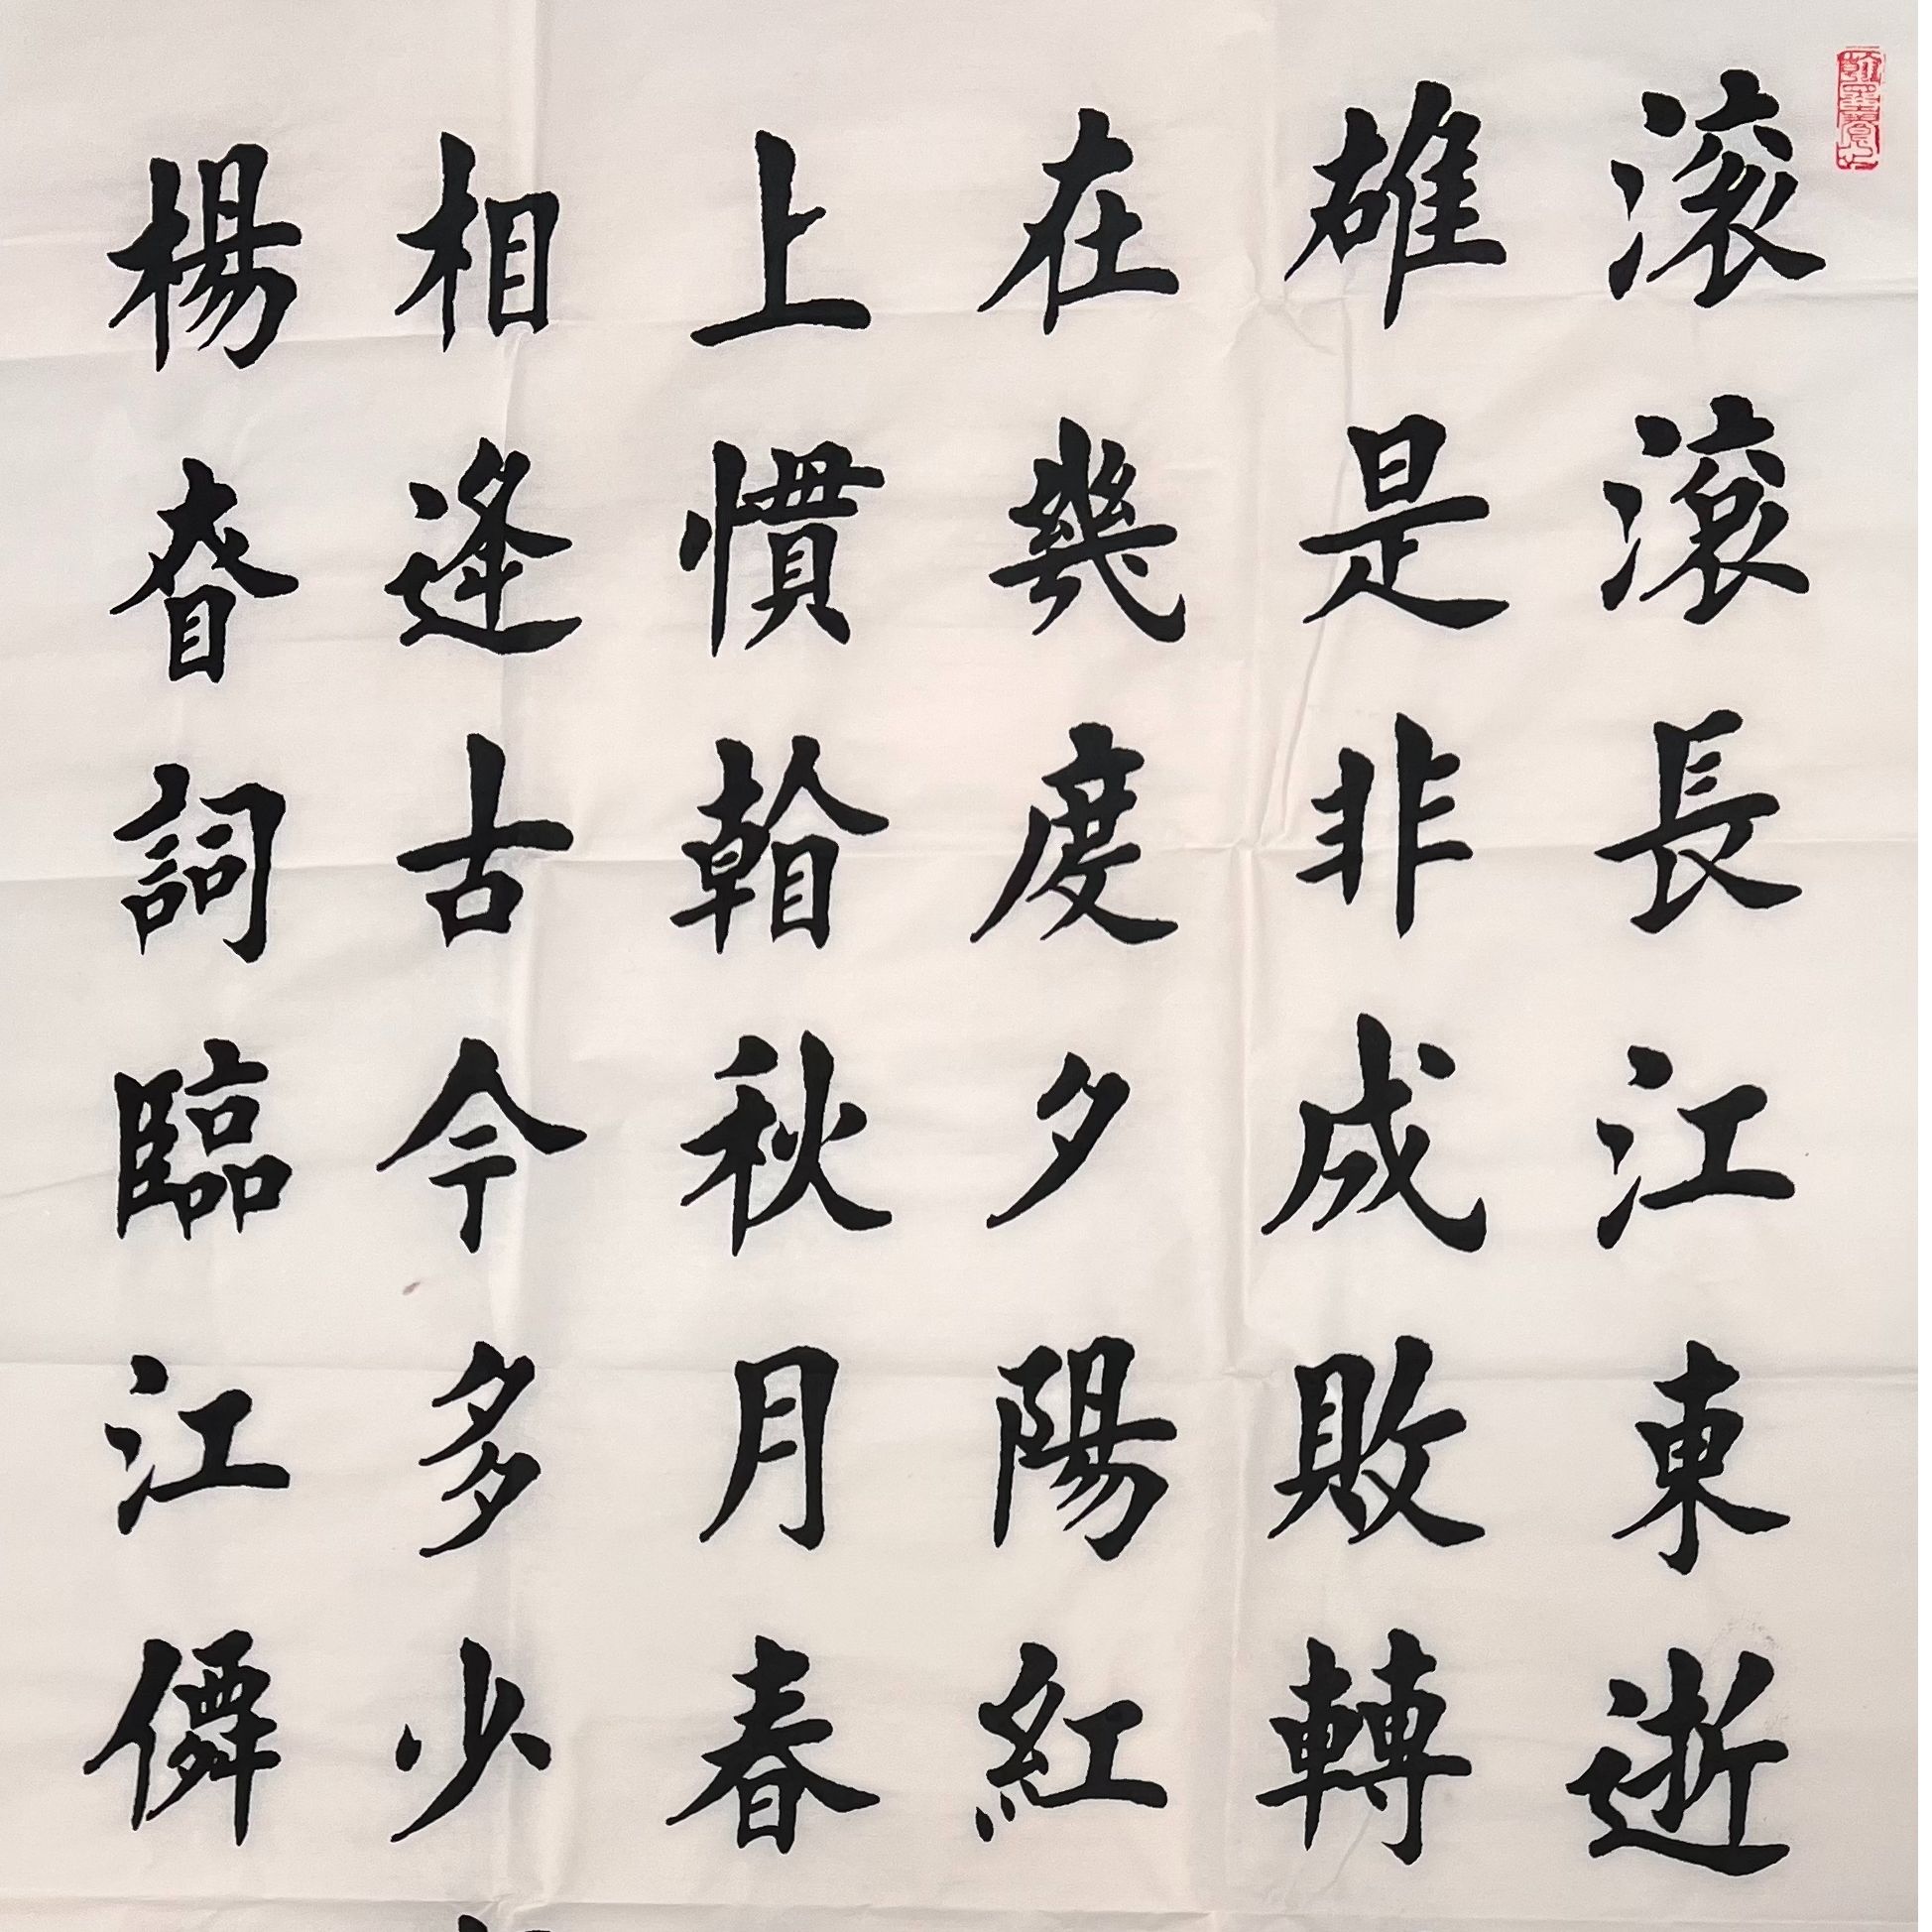 滚滾長江東逝
雄是非成敗轉
在幾度夕陽紅
上慣看秋月春
相逢古今多少
楊眘詞臨江僊